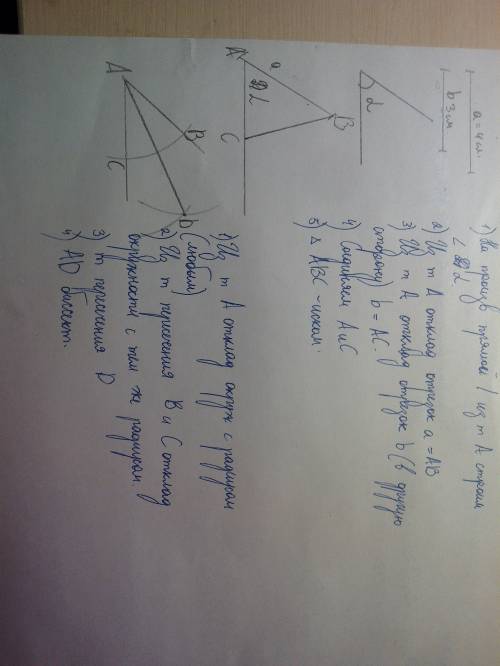 a = 4 см.
b 3 см
α
1) На произв прямой / из т A строим
∠ α
2) Из т A отклад отрезок a = AB
3) Из т A отклад отрезок b (в другую
сторону) b = AC.
4) Соединяем A и C
5) Δ ABC - иском.
A
a
α
B
C
A
B
C
D
1) Из т A отклад окруж с радиусом
(любым)
2) Из т пересечения B и C отклад
окружности с тем же радиусом.
3) т пересечения D
4) AD биссект.